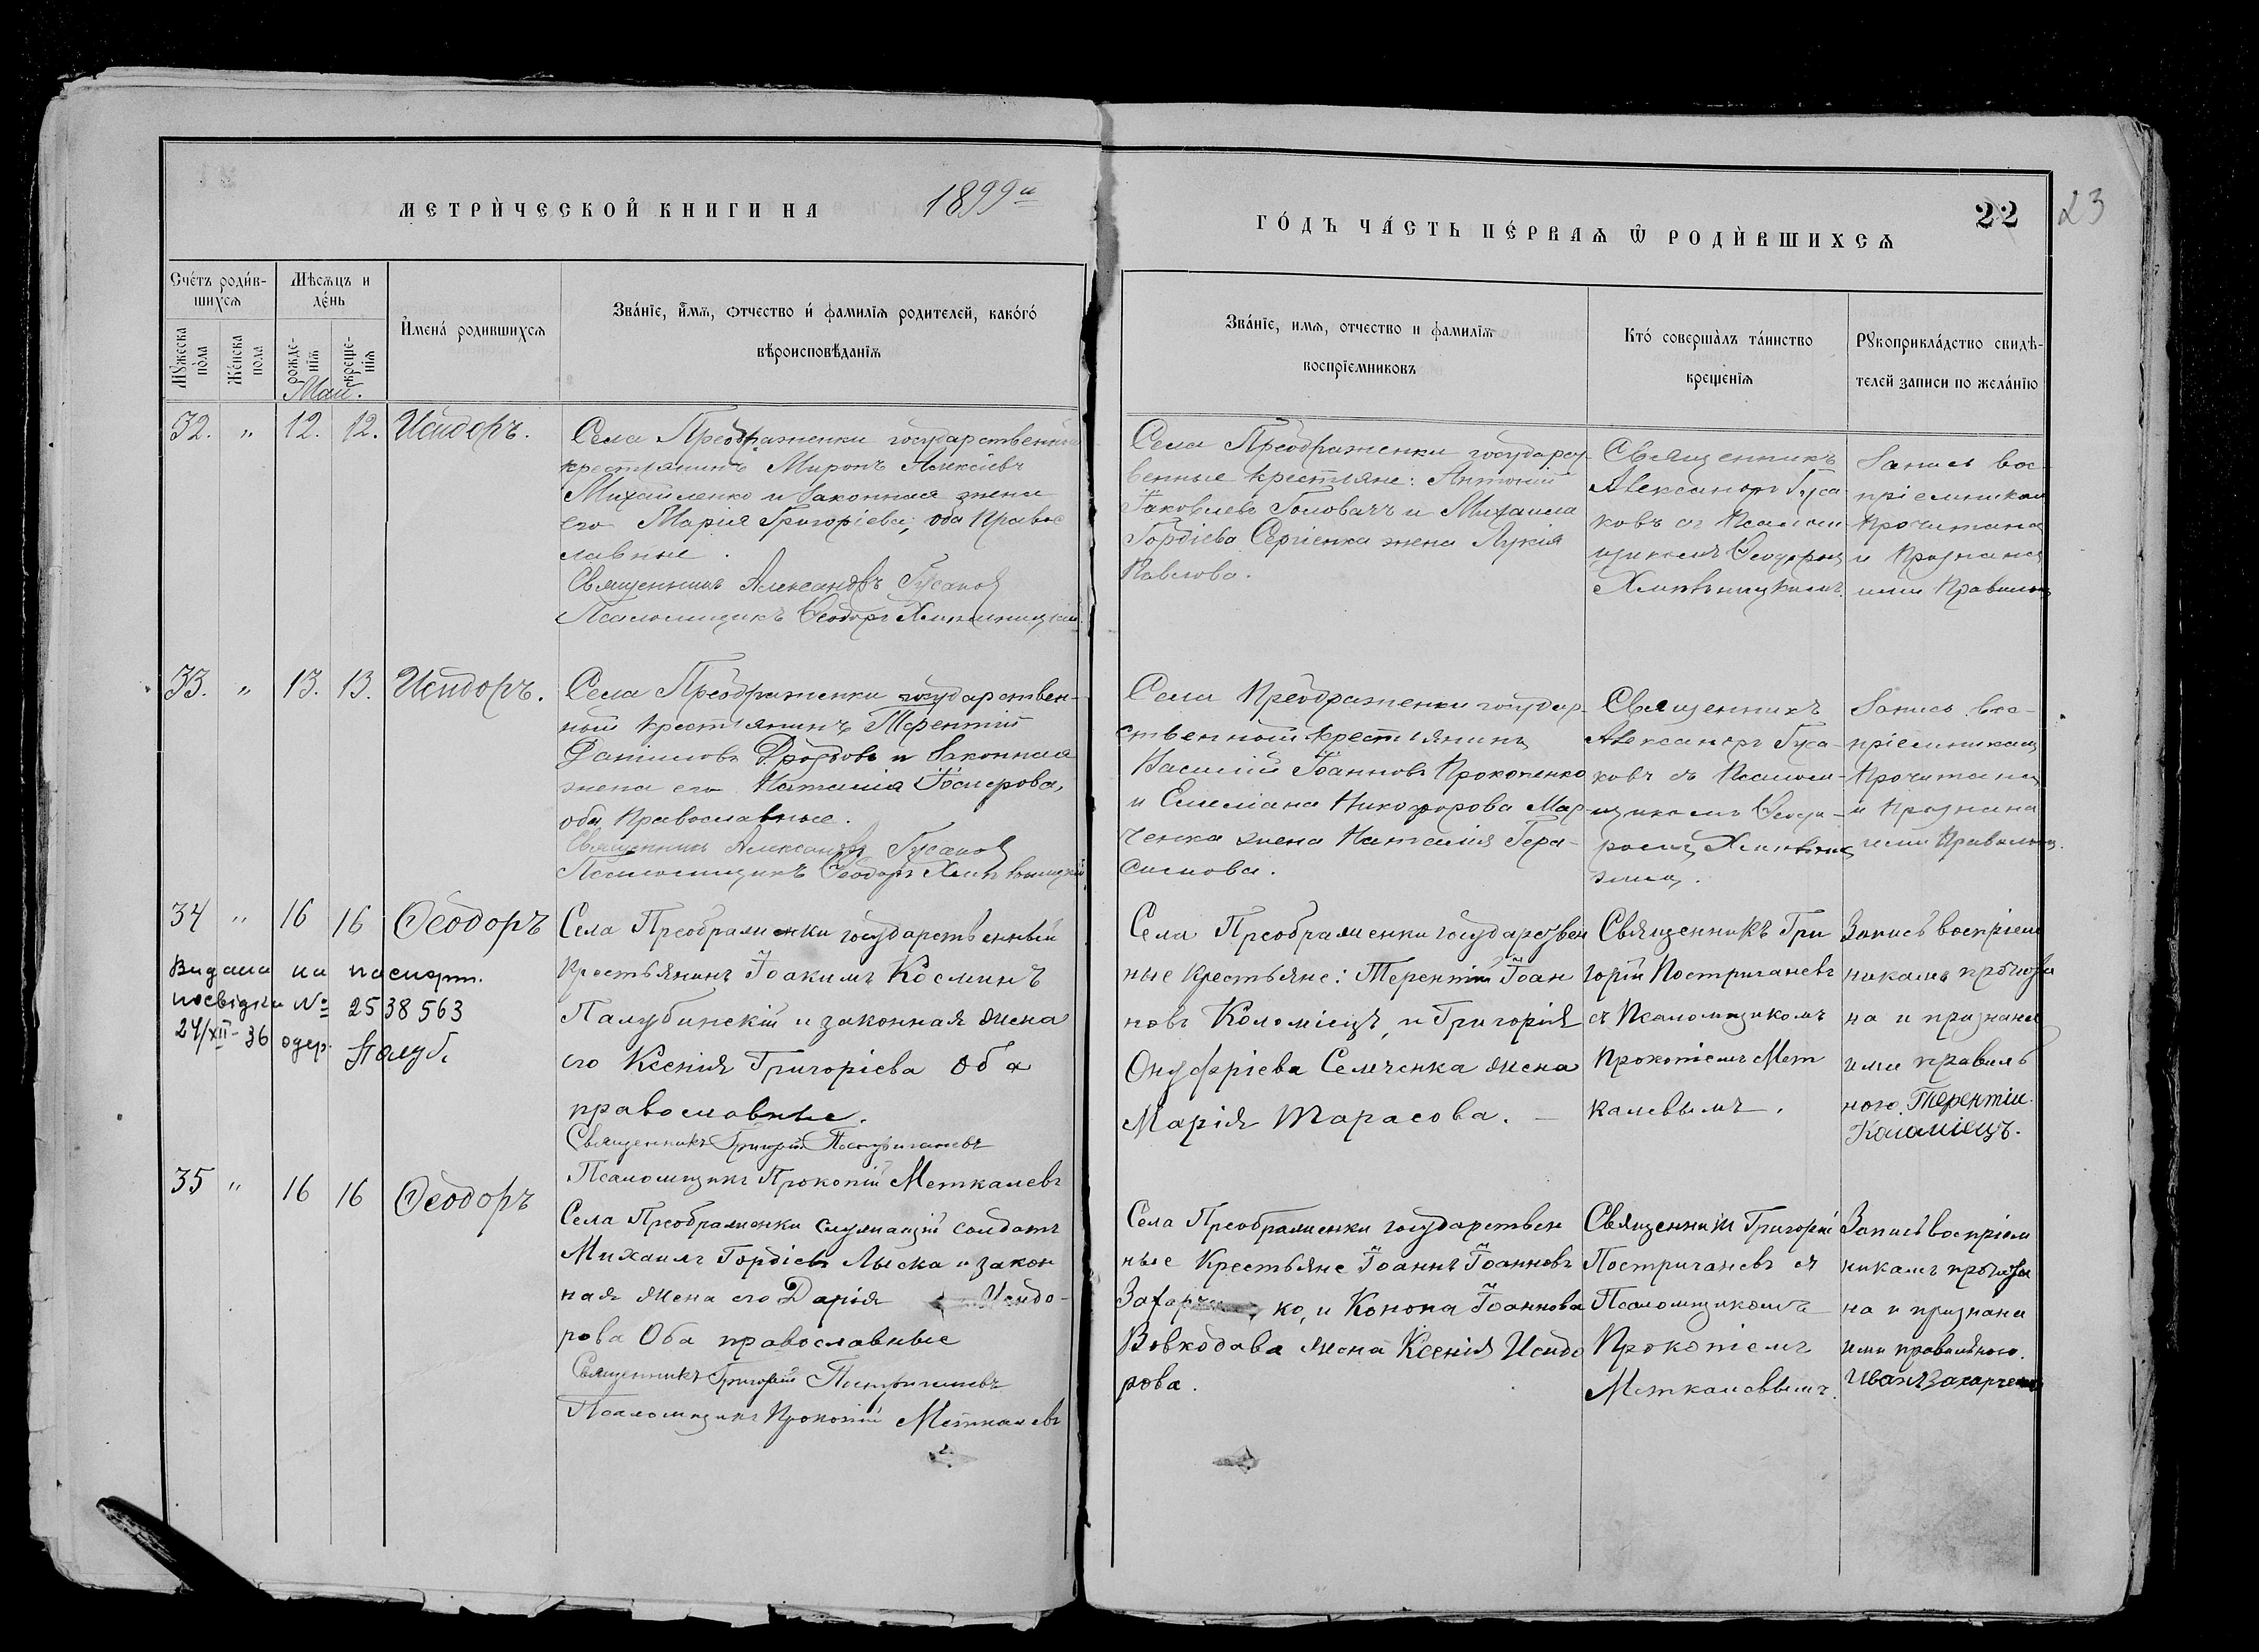 МЕТРИ́ЧЕСКОЙ КНИГИ НА 1899й
ГО́ДЪ ЧА́СТЬ ПЕ́РВАѦ Ѿ РОДИ́ВШИХСѦ
22
23
Сче́тъ роди́в-
шихсѧ
Мѣсѧцъ и
де́нь
Мꙋжеска по́ла
Же́нска пола
рожде-нїѧ
креще-нїѧ
И҆мена́ родившихсѧ
Зва́нїе, и҆́мѧ, ѻтчество и҆ фамилїѧ родителей, како́гѡ
вѣроисповѣданїѧ
Зва́нїе, имѧ, отчество и фамилїѧ
воспрїемниковъ
Кто́ соверша̀лъ та́инство
креще́нїѧ
Рꙋкоприкла́дство свидѣ-
телей записи по жела́нїю
Май.
32. „ 12. 12. Исидоръ.
Села Преображенки государственный
крестьянинъ Миронъ Алексіевъ
Михайленко и законная жена
его Марія Григоріева, оба Право
славные.
Священникъ Александръ Гусаковъ
Псаломщикъ Ѳеодоръ
Села Преображенки государст
венные крестьяне: Антоній
Іаковлевъ Головачъ и Михаила
Гордіева Сергіенка жена Лукія
Павлова.
Священникъ
Александръ Гуса
ковъ съ Псалом
щикомъ Ѳеодоромъ
Запись вос-
пріемникам
прочитана
и признана
ими правильн
33. „ 13. 13. Исидоръ.
Села Преображенки государствен-
ный крестьянинъ Терентій
Даніиловъ Дроздовъ и законная
жена его Наталія
оба Православные.
Священникъ Александръ Гусаковъ
Псаломщикъ Ѳеодоръ
Села Преображенки государ-
ственный крестьянинъ
Василій Іоанновъ Прокопенко
и Емеліана Никифорова Мар-
ченка жена Наталія Гера-
симова.
Священникъ
Александръ Гуса-
ковъ съ Псалом-
щикомъ Ѳеодо-
ромъ
Запись вос-
пріемникам
прочитана
и признана
ими правильн.
34 „ 16 16 Ѳеодоръ
Видана на паспорт.
посвідки № 2538563
24/XII-36 одер. Палуб.
Села Преображенки государственный
Крестьянинъ Іоакимъ Косминъ
Палубинскій и законная жена
его Ксенія Григоріева Оба
православные.
Священникъ Григорій Постригачевъ
Псаломщикъ Прокопій Меткалевъ
Села Преображенки государствен
ные Крестьяне: Терентій Іоан
новъ Коломіецъ, и Григорія
Онуфріева Семченка жена
Марія Тарасова. —
Священникъ Гри
горій Постригачевъ
съ Псаломщикомъ
Прокопіемъ Мет
калевымъ.
Запись воспріем
никамъ прочита
на и признана
ими правиль
ною. Терентій
Коломіецъ.
35 „ 16 16 Ѳеодоръ
Села Преображенки служащій солдатъ
Михаилъ Гордіевъ Лыска и закон
ная жена его Дарія Исидо-
рова Оба православные
Священникъ Григорій Постригачевъ
Псаломщикъ Прокопій Меткалевъ
Села Преображенки государствен
ные Крестьяне Іоаннъ Іоанновъ
Захарченко, и Конона Іоаннова
Вовкодава жена Ксенія Исидо
рова.
Священникъ Григорій
Постригачевъ съ
Псаломщикомъ
Прокопіемъ
Меткалевымъ.
Запись воспріем
никамъ прочита
на и признана
ими правильною.
Иванъ Захарченко